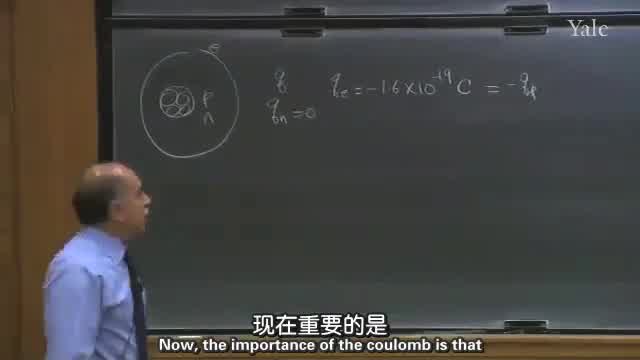 Yale
e
q qₑ = -1.6 × 10⁻¹⁹ C = -qₚ
p
n qₙ = 0
现在重要的是
Now, the importance of the coulomb is that